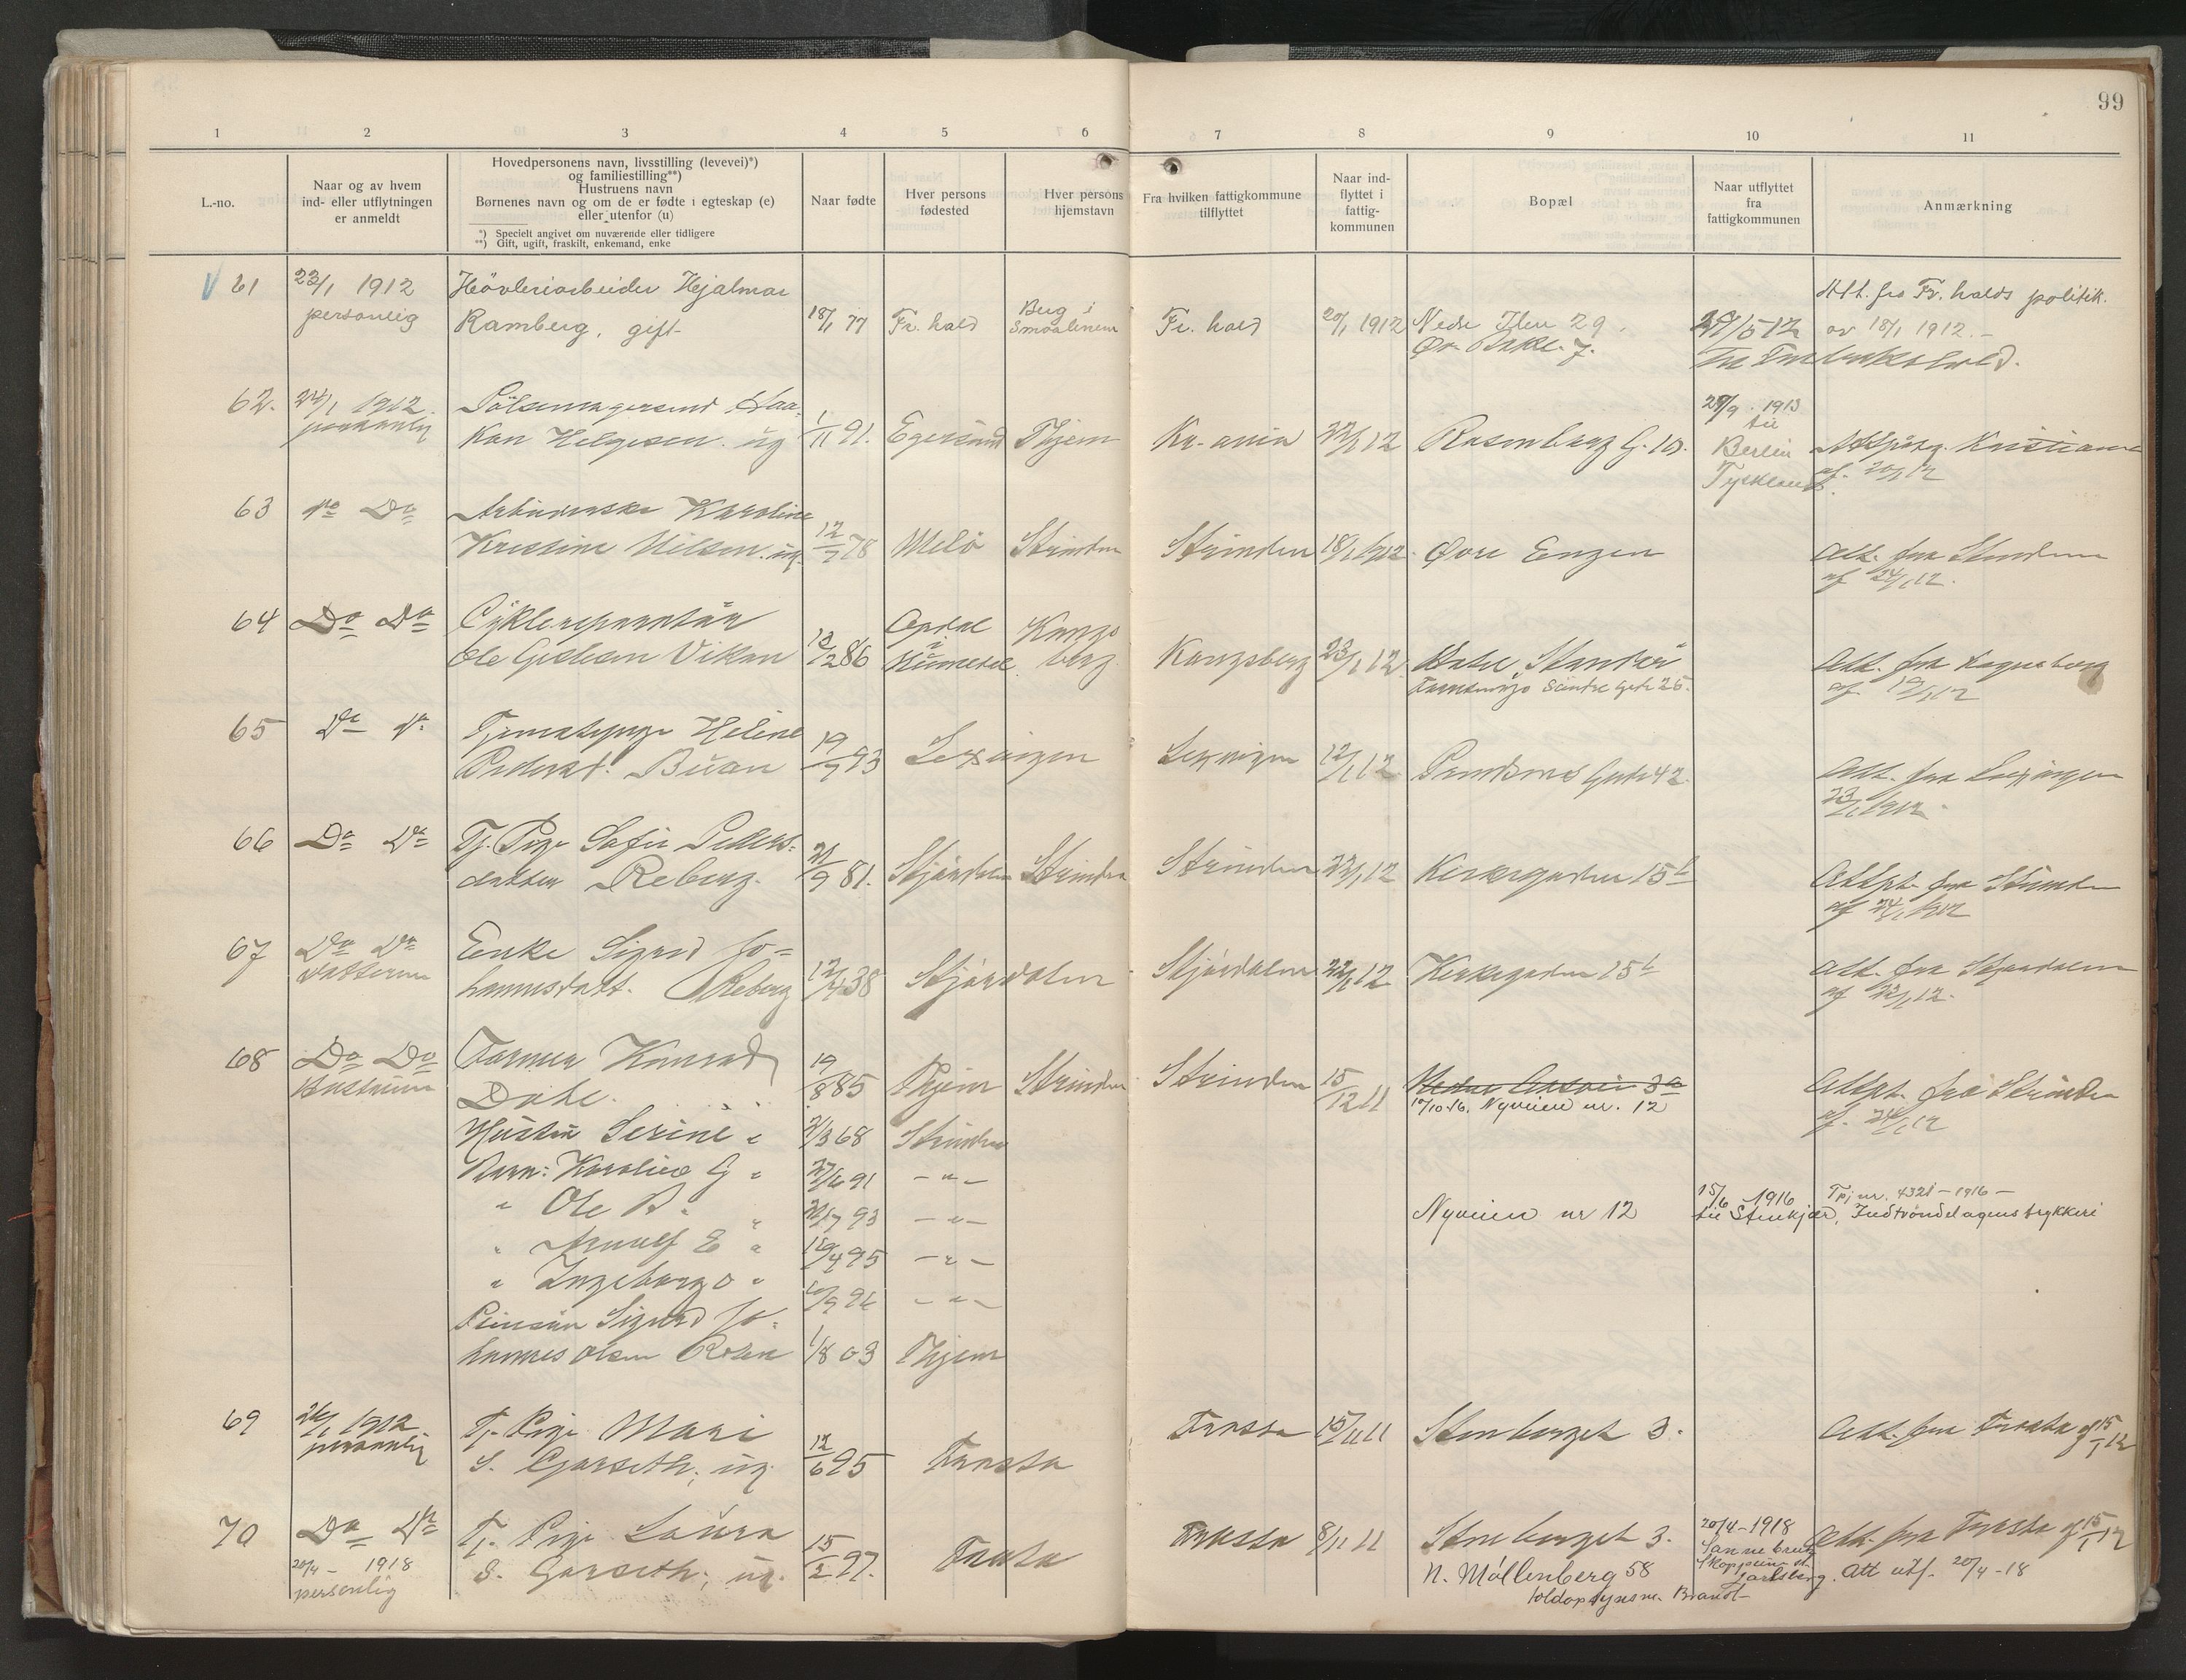 99
1 2 3 4 5 6 7 8 9 10 11
L.-no.
Naar og av hvem
ind- eller utflytningen
er anmeldt
Hovedpersonens navn, livsstilling (levevei)*)
og familiestilling**)
Hustruens navn
Børnenes navn og om de er fødte i egteskap (e)
eller utenfor (u)
*) Specielt angivet om nuværende eller tidligere
**) Gift, ugift, fraskilt, enkemand, enke
Naar fødte
Hver persons
fødested
Hver persons
hjemstavn
Fra hvilken fattigkommune
tilflyttet
Naar ind-
flyttet i
fattig-
kommunen
Bopæl
Naar utflyttet
fra
fattigkommunen
Anmærkning
61 23/1 1912 Høvleriarbeider Hjalmar Att. fra Fr. halds politik.
personlig Ramberg, gift 18/1 77 Fr. hald Berg i Smaalenene Fr. hald 20/1 1912 Nedre Ilen 29. av 18/1 1912.
62. 24/1 1912 Pølsemagersvend Haa- 29/9 1913
personlig kon Helgesen. ug 1/11 91. Egersund Thjem Kr-ania 22/1 12 Rosenborg G. 10. til Berlin
Tyskland.
63 Do Do Arbeiderske Karoline
Kristine Nilsen. ug. 12/7 78 Melö Strinden Strinden 18/1 1912 Øvre Engen Att. fra Strinden
af 24/1 12.
64 Do Do Cyklereparatör Opdal i Kongsberg
Ole Gislesen Vikan 86 Kongsberg 23/1 12 Hotel Standard Att. fra Kongsberg
af 19/1 12
65 Do Do Tjenestepige Heline
Pedersdt. Buan 19/7 93 Leksvigen Leksvigen 12/1 12 Gate 42 Att. fra Leksvigen
23/1 1912
66 Do Do Tj. Pige Sofie Peders-
datter Reberg. 21/9 81. Stjørdalen Strinden Strinden 22/1 12 Kirkegaden 15 b Attpt. fra Strinden
af 24/1 1912
67 Do Do Enke Sigrid Jo-
Datteren hannesdatt. Reberg 12/4 38 Stjørdalen Stjørdalen 22/1 12 Kirkegaden 15 b Att. fra Stjørdalen
af 22/1 12.
68 Do Do Former Konrad
Hustruen Dahl. 19/8 85 Thjem Strinden Strinden 15/12 11 17/10-16. Nyveien nr. 12 Attpt. fra Strinden
af. 24/1 12
Hustru Serine " 2/3 68 Strinden
Barn: Karoline G " 27/6 91 - " -
" Ole B. " 93 - " - Nyveien nr 12 15/6 1916 Tpj nr. 4321 - 1916 -
til Stenkjær, Indtrøndelagens trykkeri
" Arnulf E " 19/4 95 - " -
" Ingeborg O " - " -
Pensionær Sigurd Jo-
hannes Olsen 1/8 03 Thjem
69 26/1 1912 Tj. Pige Mari
personlig S. Garseth, ug. 12/6 95 Frosta Frosta 15/11 11 Stenberget 3. Att. fra Frosta af 15/1 12
70 Do Do Tj. Pige Laura
S. Garseth, ug. 15/2 97. Frosta Frosta 8/11 11 Stenberget 3. 20/4-1918 Att. fra Frosta af 15/1 12
20/4 - 1918 N. Møllenberg 58 Jarlsberg. Att utf. 20/4-18
personlig Toldopsynsm. Brandt